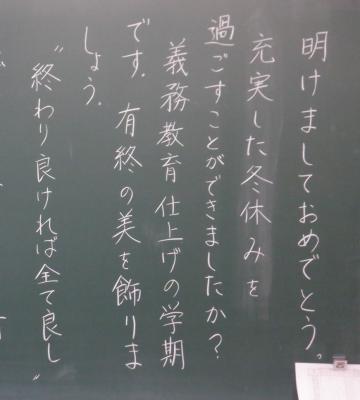 明けましておめでとう。
充実した冬休みを
過ごすことができましたか?
義務教育仕上げの学期
です。有終の美を飾りま
しょう。
“終わり良ければ全て良し„